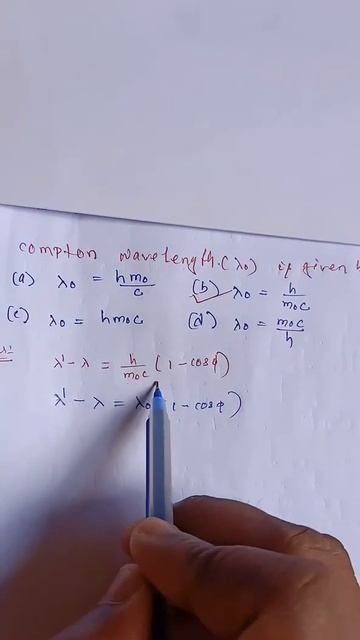 compton wavelength (λ₀) is given
(a) λ₀ = hm₀/c (b) λ₀ = h/m₀c
(c) λ₀ = hm₀c (d) λ₀ = m₀c/h
λ' - λ = h/m₀c (1 - cosϕ)
λ' - λ = λ₀ 1 - cosϕ)